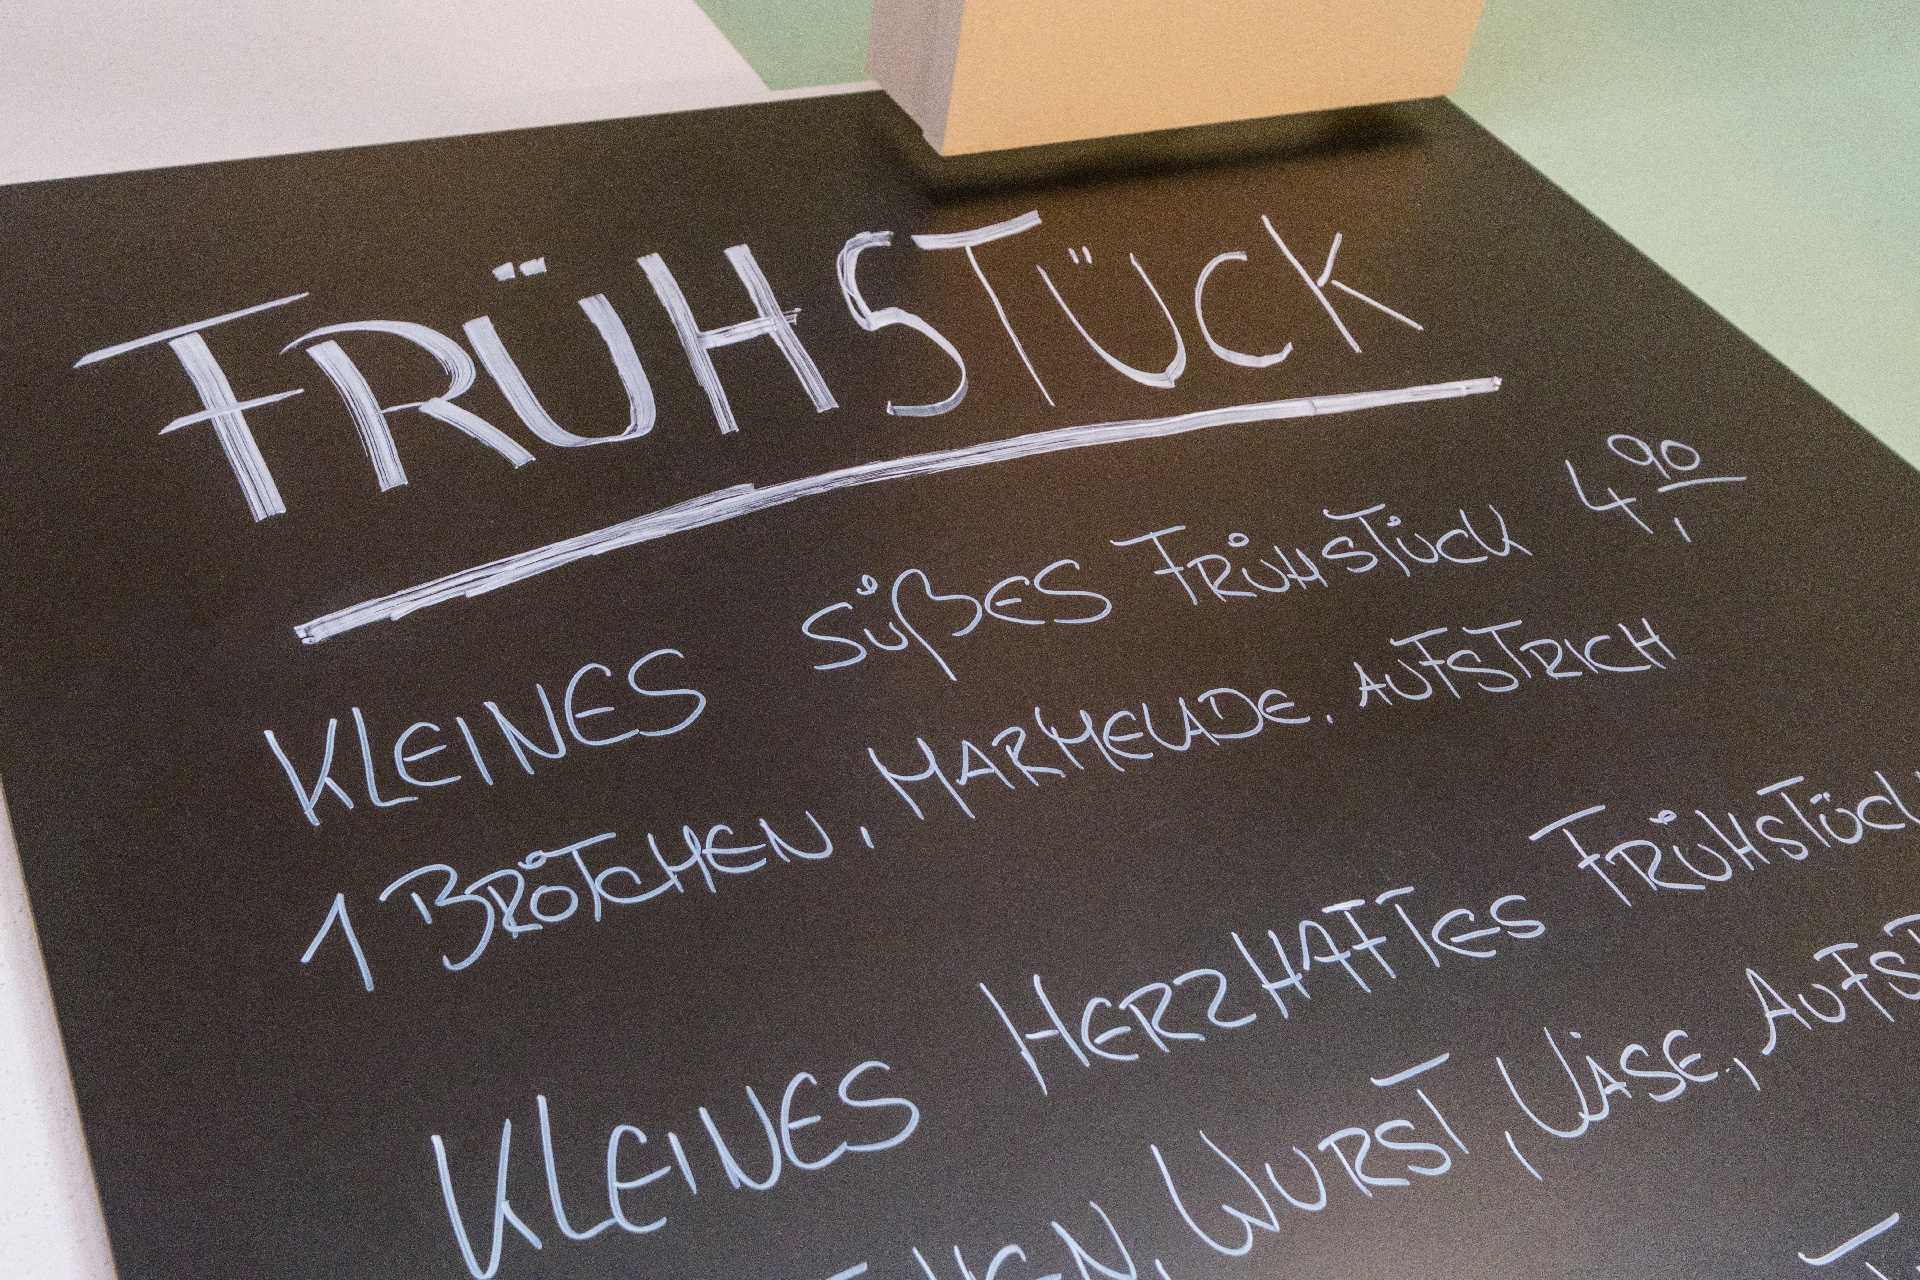 FRÜHSTÜCK
KLEINES SÜßES FRÜHSTÜCK 4,90
1 BRÖTCHEN, MARMELADE, AUFSTRICH
KLEINES HERZHAFTES FRÜHSTÜCK
WURST, KÄSE, AUFST